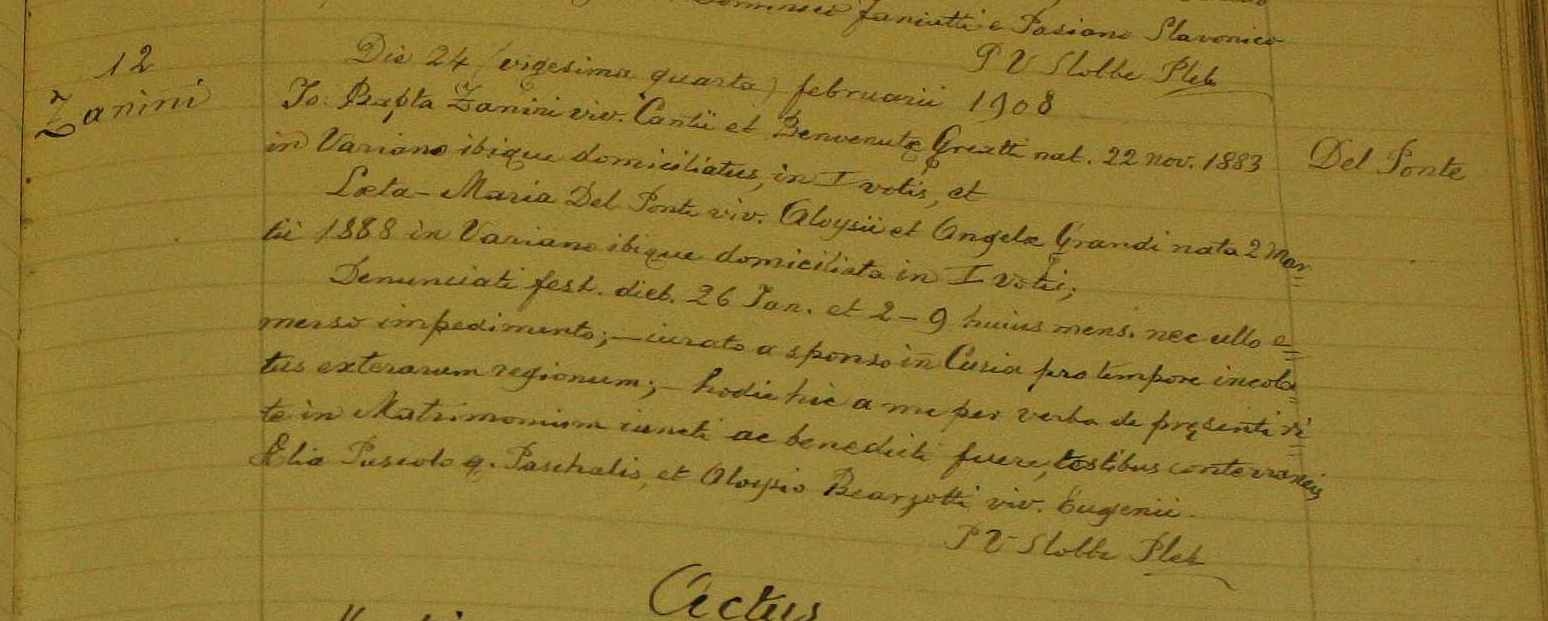 Dominico Zaniutti e Pasiano Slavonico
P V Slobbe Pleb
12
Zanini
Die 24 (vigesima quarta) februarii 1908
Jo: Bapta Zanini viv. Cantii et Benvenutæ Greatti nat. 22 nov. 1883
Del Ponte
in Variano ibique domiciliatus, in I votis, et
Læta-Maria Del Ponte viv. Aloysii et Angelæ Grandi nata 2 Mar=
tii 1888 in Variano ibique domiciliata in I votis;
Denunciati fest. dieb. 26 Jan. et 2-9 huius mens. nec ullo e=
merso impedimento; - iurato a sponso in Curia pro tempore incola=
tus exterarum regionum; - hodie hic a me per verba de præsenti ri=
te in Matrimonium iuncti ac benedicti fuere, testibus conterraneis
Elia Pascolo q. Paschalis, et Aloysio Bearzotti viv. Eugenii.
P V Slobbe Pleb
Actus